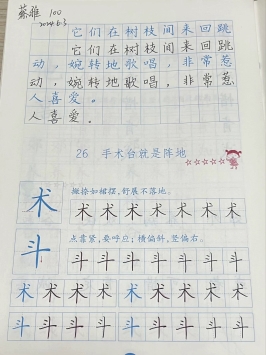 蔡雅 100
2024.6.3
它们在树枝间来回跳
它们在树枝间来回跳
动,婉转地歌唱,非常惹
动,婉转地歌唱,非常惹
人喜爱。
人喜爱。
26 手术台就是阵地
术 撇捺如裙摆,舒展不落地。
术术术术术术术术
斗 点靠紧,要呼应;横偏斜,竖偏右。
斗斗斗斗斗斗斗斗
术术术术术术术术术
斗斗斗斗斗斗斗斗斗